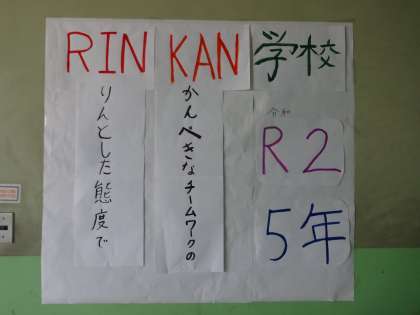 RIN KAN 学校
りんとした態度で
かんぺきなチームワークの
令和
R2
5年